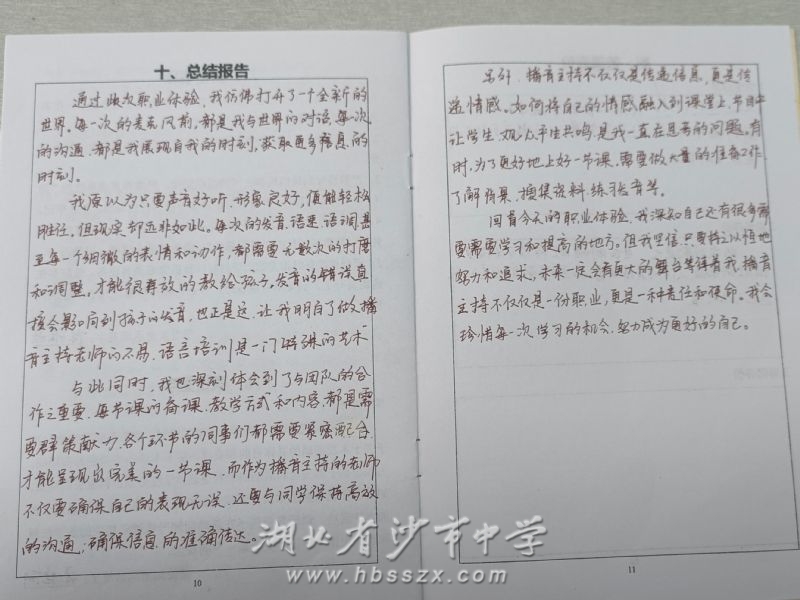 十、总结报告
通过此次职业体验，我仿佛打开了一个全新的
世界。每一次的表克风前，都是我与世界的对话，每次
的沟通，都是我展现自我的时刻，获取更多信息的
时刻。
我原以为只要声音好听，形象良好，便能轻松
胜任。但现实却远非如此。每次的发音、语速、语调，甚
至每一个细微的表情和动作，都需要无数次的打磨
和调整，才能很奔放的教给孩子，发音的错误直
接会影响到孩子的发音，也正是这，让我明白了做播
音主持老师的不易，语言培训是一门特殊的艺术
与此同时，我也深刻体会到了与团队的合
作之重要，每节课的备课、教学方式和内容，都是需
要群策献力，各个环节的同事们都需要紧密配合，
才能呈现出完美的一节课，而作为播音主持的老师
不仅要确保自己的表现无误，还要与同学保持高效
的沟通，确保信息的准确传达。
10
另外，播音主持不仅仅是传递信息，更是传
递情感。如何将自己的情感融入到课堂上，节目中
让学生，观众产生共鸣，是我一直在思考的问题。有
时，为了更好地上好一节课，需要做大量的准备工作，
了解背景，搜集资料，练习发音等。
回首今天的职业体验，我深知自己还有很多需
要需要学习和提高的地方。但我坚信，只要持之以恒地
努力和追求，未来一定会有更大的舞台等待着我。播音
主持不仅仅是一份职业，更是一种责任和使命。我会
珍惜每一次学习的机会，努力成为更好的自己。
11
湖北省沙市中学
www.hbsszx.com